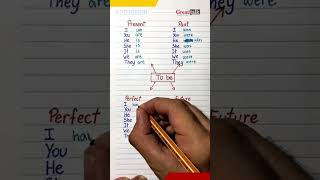 Great
Present Past
I am I was
You are You were
He is He was
She is She was
It is It was
We are We were
They are They were
To be
Perfect Future
I
You
He
She
It
We
I hav
You
He
She